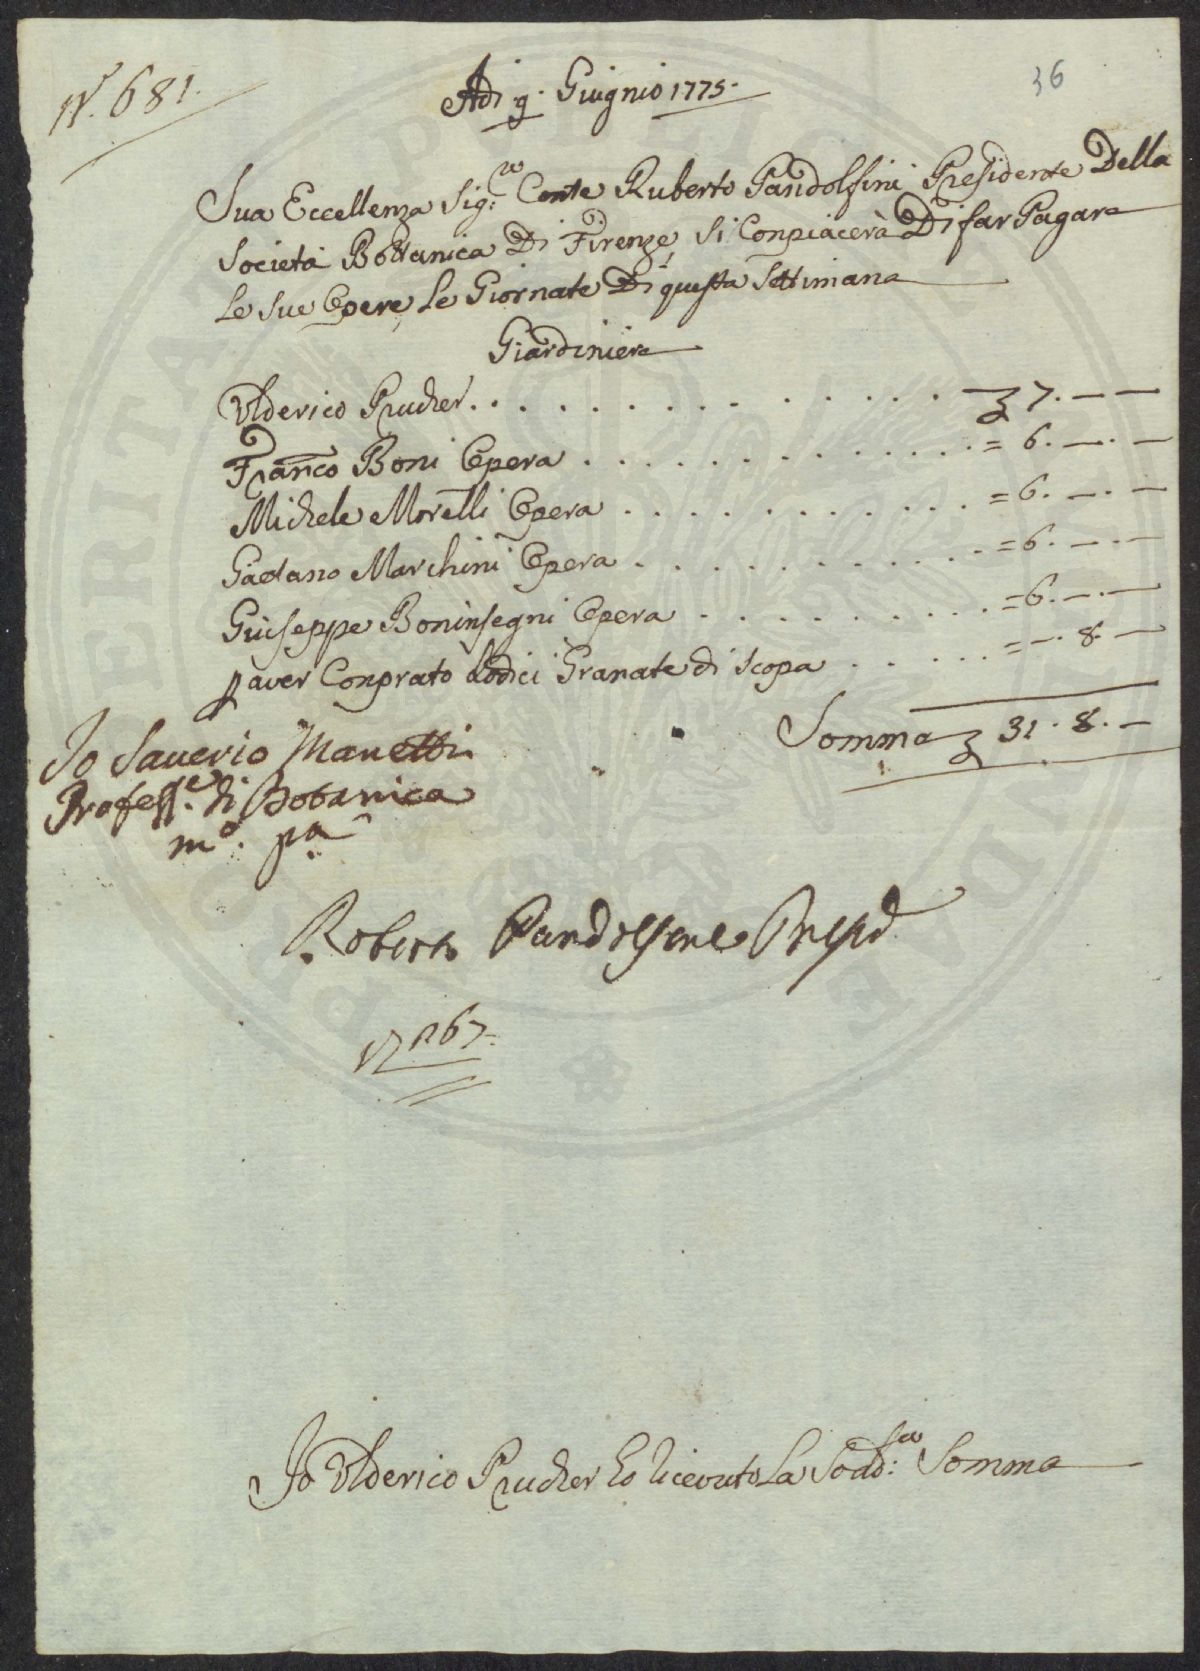 N.º 681.
Adi 9. Giugnio 1775.
36
Sua Eccellenza Sig:re Conte Ruberto Pandolfini Presidente Della
Società Bottanica Di Firenze, Si Conpiacerà Di far Pagare
Le Sue Opere, Le Giornate Di questa Settimana
Giardiniere
Vlderico Prucher . . . . . . . . . . . . . . ʒ 7. — —
Franco Boni Opera . . . . . . . . . . . . = 6. —. —
Michele Morelli Opera . . . . . . . . . . . = 6. —. —
Gaetano Marchini Opera . . . . . . . . . . = 6. —. —
Guiseppe Boninsegni Opera . . . . . . . . = 6. —. —
p aver Conprato dodici Granate di Scopa . . . . . = —. 8. —
Somma ʒ 31. 8. —
Io Saverio Manetti
Profess.e di Botanica
m.o p.a
Roberto Pandolfini Presid
67
Io Vlderico Prucher ho ricevuto La Sodd:ta Somma
PVBLICA
PERITAT